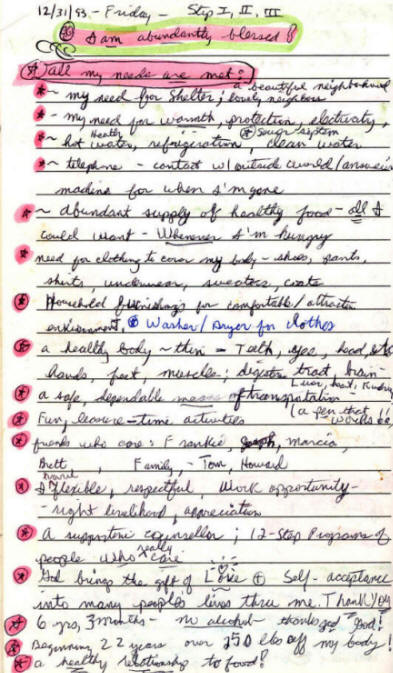 12/31/93 - Friday - Step I, II, III
I am abundantly blessed!
all my needs are met:
~ my need for Shelter; a beautiful neighborhood lovely neighbors
~ my need for warmth, protection, electricity,
~ hot water, Heater refrigeration, sewer system clean water
~ telephone - contact w/outside world/answering
machine for when I'm gone
~ abundant supply of healthy food - all I
could want - Whenever I'm hungry
need for clothing to cover my body - shoes, pants,
shirts, underwear, sweaters, coats
Household furnishings for comfortable/attractive
environment, Washer/Dryer for clothes
a healthy body ~ thin - Teeth, eyes, head, etc
hands, feet muscles; digestive tract, brain -
Liver, heart, Kidneys
a safe, dependable means of transportation -
Fun, leisure-time activities (a pen that works!!
friends who care: Frankie, Joseph, Marcia,
Brett, Family, - Tom, Howard
A flexible, respectful, work opportunity -
- right livelihood, appreciation
A supportive counsellor; 12-Step Programs of
people who really care
God brings the gift of Love + Self-acceptance
into many peoples lives thru me. Thank You
6 yrs, 3 months - no alcohol - thanks God!
Beginning 22 years over 150 lbs off my body!
a healthy relationship to food!